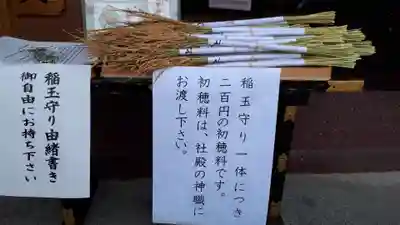 稲玉守り一体につき
二百円の初穂料です。
初穂料は、社殿の神職に
お渡し下さい。
稲玉守り由緒書き
御自由にお持ち下さい